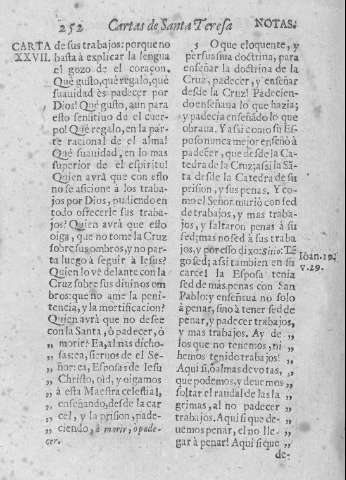 252 Cartas de Santa Teresa NOTAS.
CARTA
XXVII.
de sus trabajos: porque no
hasta à explicar la lengua
el gozo de el coraçon.
Què gusto, què regalo, què
suauidad es padecer por
Dios! Què gusto, aun para
esto sensitiuo de el cuer-
po! Què regalo, en la par-
te racional de el alma!
Què suauidad, en lo mas
superior de el espiritu!
Quien avrà que con esto
no se aficione à los traba-
jos por Dios, pudiendo en
todo ofrecerle sus traba-
jos? Quien avrà que esto
oiga, que no tome la Cruz
sobre sus ombros, y no par-
ta luego à seguir à Iesus?
Quien lo vè delante con la
Cruz sobre sus diuinos om-
bros: que no ame la peni-
tencia, y la mortificacion?
Quien avrà que no desee
con la Santa, ò padecer, ò
morir? Ea, almas dicho-
sas: ea, sieruos de el Se-
ñor: ea, Esposas de Iesu
Christo, oid, y oigamos
à esta Maestra celestial,
enseñando, desde la car-
cel, y la prision, pade-
ciendo, à morir, ò pade-
cer.
5 O que eloquente, y
persuasiua doctrina, para
enseñar la doctrina de la
Cruz, padecer, y enseñar
desde la Cruz! Padecien-
do enseñaua lo que hazia;
y padecia enseñãdo lo que
obraua. Y assi como su Es-
poso nunca mejor enseñò à
padecer, que desde la Ca-
tedra de la Cruz; assi la Sã-
ta desde la Catedra de su
prision, y sus penas. Y co-
mo el Señor muriò con sed
de trabajos, y mas traba-
jos, y faltaron penas à su
sed; mas no sed à sus traba-
jos, y por esso dixo: Sitio: Tẽ-
go sed; assi tambien en su
carcel la Esposa tenia
sed de mas penas con San
Pablo: y enseñaua no solo
à penar, sino à tener sed de
penar, y padecer trabajos,
y mas trabajos. Ay de
los que no tenemos, ni
hemos tenido trabajos!
Aqui si, ò almas deuotas,
que podemos, y deuemos
soltar el raudal de las la-
grimas, al no padecer
trabajos. Aqui si que de-
uemos penar, el no lle-
gar à penar! Aqui si que
de-
Ioan. 19.
v. 29.